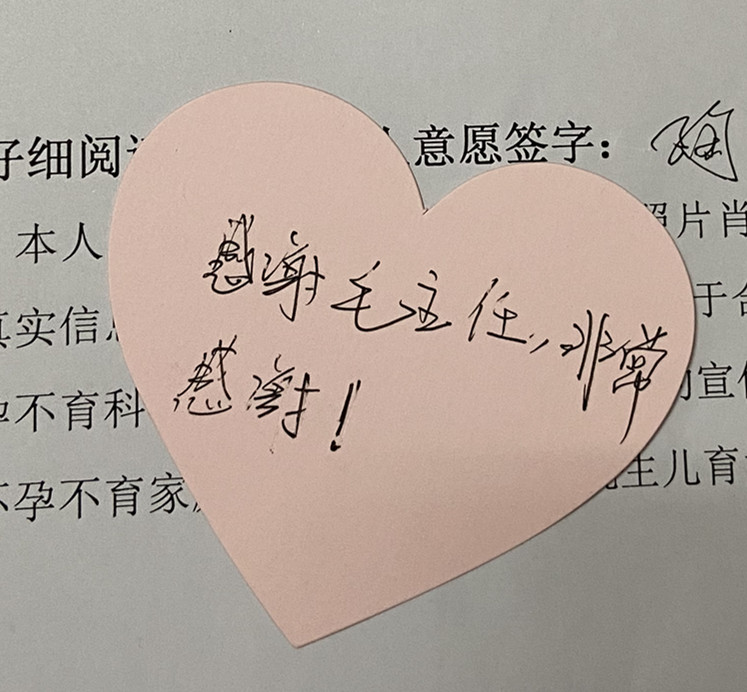 仔细阅
意愿签字：
本人
照片肖
真实信息
于合
孕不育科
的宣传
不孕不育家
生儿育
感谢毛主任，非常
感谢！